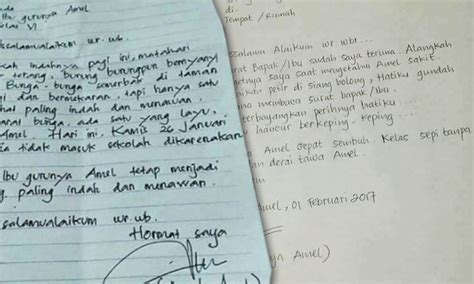 Ibu gurunya Amel
Kelas VI
ssalamualaikum wr. wb.
kah indahnya pagi ini, matahari
terang, burung burungpun bernyanyi
Bunga-bunga semerbak di taman
dan bermekaran, tapi hanya satu
paling indah dan menawan.
bunga, ada satu yang layu.
Amel. Hari ini, Kamis 26 Januari
tidak masuk sekolah dikarenakan
Ibu gurunya Amel tetap menjadi
paling indah dan menawan.
ssalamualaikum wr. wb.
Hormat saya
di-
Tempat / Rumah
ssalamu Alaikum wr wbr...
rat Bapak/Ibu sudah saya terima. Alangkah
saya saat mengetahui Amel sakit.
petir di siang bolong, Hatiku gundah
membaca surat bapak/ibu.
terbayangkan perihnya hatiku...
hancur berkeping-keping...
Amel cepat sembuh. Kelas sepi tanpa
derai tawa Amel.
01 Februari 2017
ya Amel)